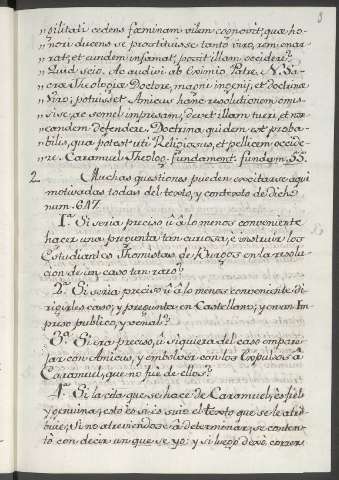 3
„ gilitati cedens fœminam vilem cognovit, quæ ho-
„ nori ducens se prostituisse tanto viro, rem enar-
„ rat, et eundem infamat, possit illam occidere?
„ Quid scio. Ac audivi ab Eximio Patre, N. Sa-
„ cræ Theologiæ Doctore, magni ingenij, et doctrinæ
„ Viro; potuisset Amicus hanc resolutionem omis-
„ isse, ac semel impresam, debet illam tueri, et nos
„ eandem defendere. Doctrina quidem est proba-
„ bilis, qua potest uti Religiosus, et pellicem occide-
„ re. Caramuel Theolog. fundament. fundam. 55.
2. Muchas questiones pueden excitarse aqui
motivadas todas del texto, y contexto de dicho
num. 647.
1ª. Si seria preciso ù â lo menos conveniente
hacer una pregunta tan curiosa, è instruir los
Estudiantes Thomistas de Burgos en la resolu-
cion de un caso tan raro?
2ª. Si seria preciso ù â lo menos conveniente di-
rigirles caso, y pregunta en Castellano; y en un Im-
preso publico, y venal?
3ª. Si era preciso, ù siquiera del caso compare-
jar con Amicus, y embolver con los Expulsos â
Caramuel, que no fuè de ellos?
4ª. Si la cita que se hace de Caramuel, ès fiel
y genuina; esto es si es suio el texto que se le atri-
buie; Si no atreviendose â determinar, se conten-
tò con decir un que se yo: y si luego debe correr